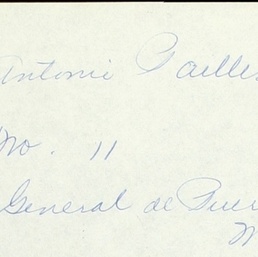 Antonie Paille
No. 11
General de Puer